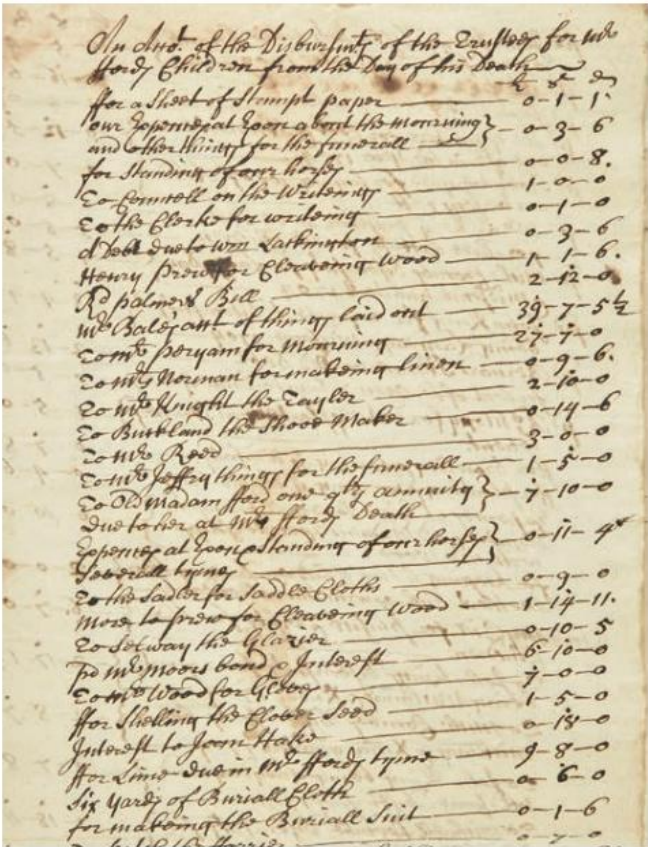 An Acco.t of the Disbursm.ts of the Trustees for Mr
ffords Children from the Day of his Death
£ S D
ffor a Sheet of Stampt paper 0-1-1
our Expences at Exon about the mourning
and other things for the funerall } 0-3-6
for Standing of our horses 0-0-8.
To Councell on the Writeings 1-0-0
To the Clerke for writeing 0-1-0
a Debt due to Wm Lackington 0-3-6
Henry Prew for Cleaveing Wood 1-1-6.
Rd palmers Bill 2-12-0
Mr Bales acct of things laid out 39-7-5½
To Mr Peryam for Mourning 27-7-0
To Mrs Norman for makeing linen 0-9-6.
To Mr Knight the Tayler 2-10-0
To Buckland the Shooe Maker 0-14-6
To Mr Reed 3-0-0
To Mr Jeffry things for the funerall 1-5-0
To Old Madam fford one qtrs annuity
due to her at Mr ffords Death } 7-10-0
Expences at Exon & Standing of our horses
Severall tymes } 0-11-4
To the Sadler for Saddle Cloths 0-9-0
More to Prew for Cleaveing Wood 1-14-11.
To Selway the Glazier 0-10-5
pd Mr Moors bond & Interest 6-10-0
To Mr Wood for Gloves 7-0-0
ffor Shelling the Clover Seed 1-5-0
Interest to Joan Hake 0-18-0
ffor Lime due in Mr ffords tyme 9-8-0
Six Yards of Buriall Cloth 0-6-0
for makeing the Buriall Suit 0-1-6
0-7-0